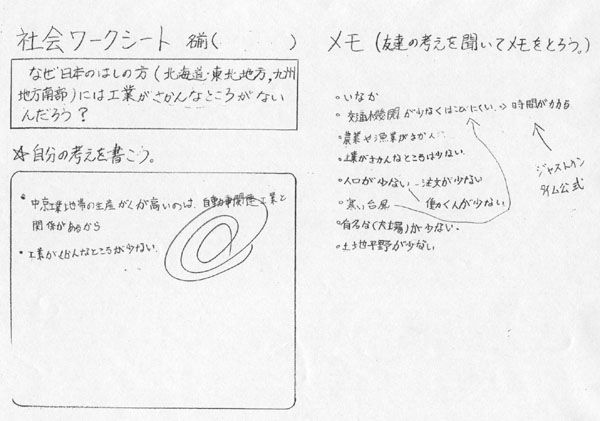 社会ワークシート 名前( )
なぜ日本のはしの方(北海道・東北地方,九州
地方南部)には工業がさかんなところがない
んだろう?
☆自分の考えを書こう。
・中京工業地帯の生産がくが高いのは、自動車関連工業と
関係があるから
・工業がさかんなところが少ない。
メモ (友達の考えを聞いてメモをとろう。)
・いなか
・交通機関が少なくはこびにくい。→時間がかかる
・農業や漁業がさかん
・工業がさかんなところは少ない。
・人口が少ない 注文が少ない
働くくんが少ない
・寒い台風
・有名な(大工場)が少ない。
・土地平野が少ない
ジャストイン
タイム公式